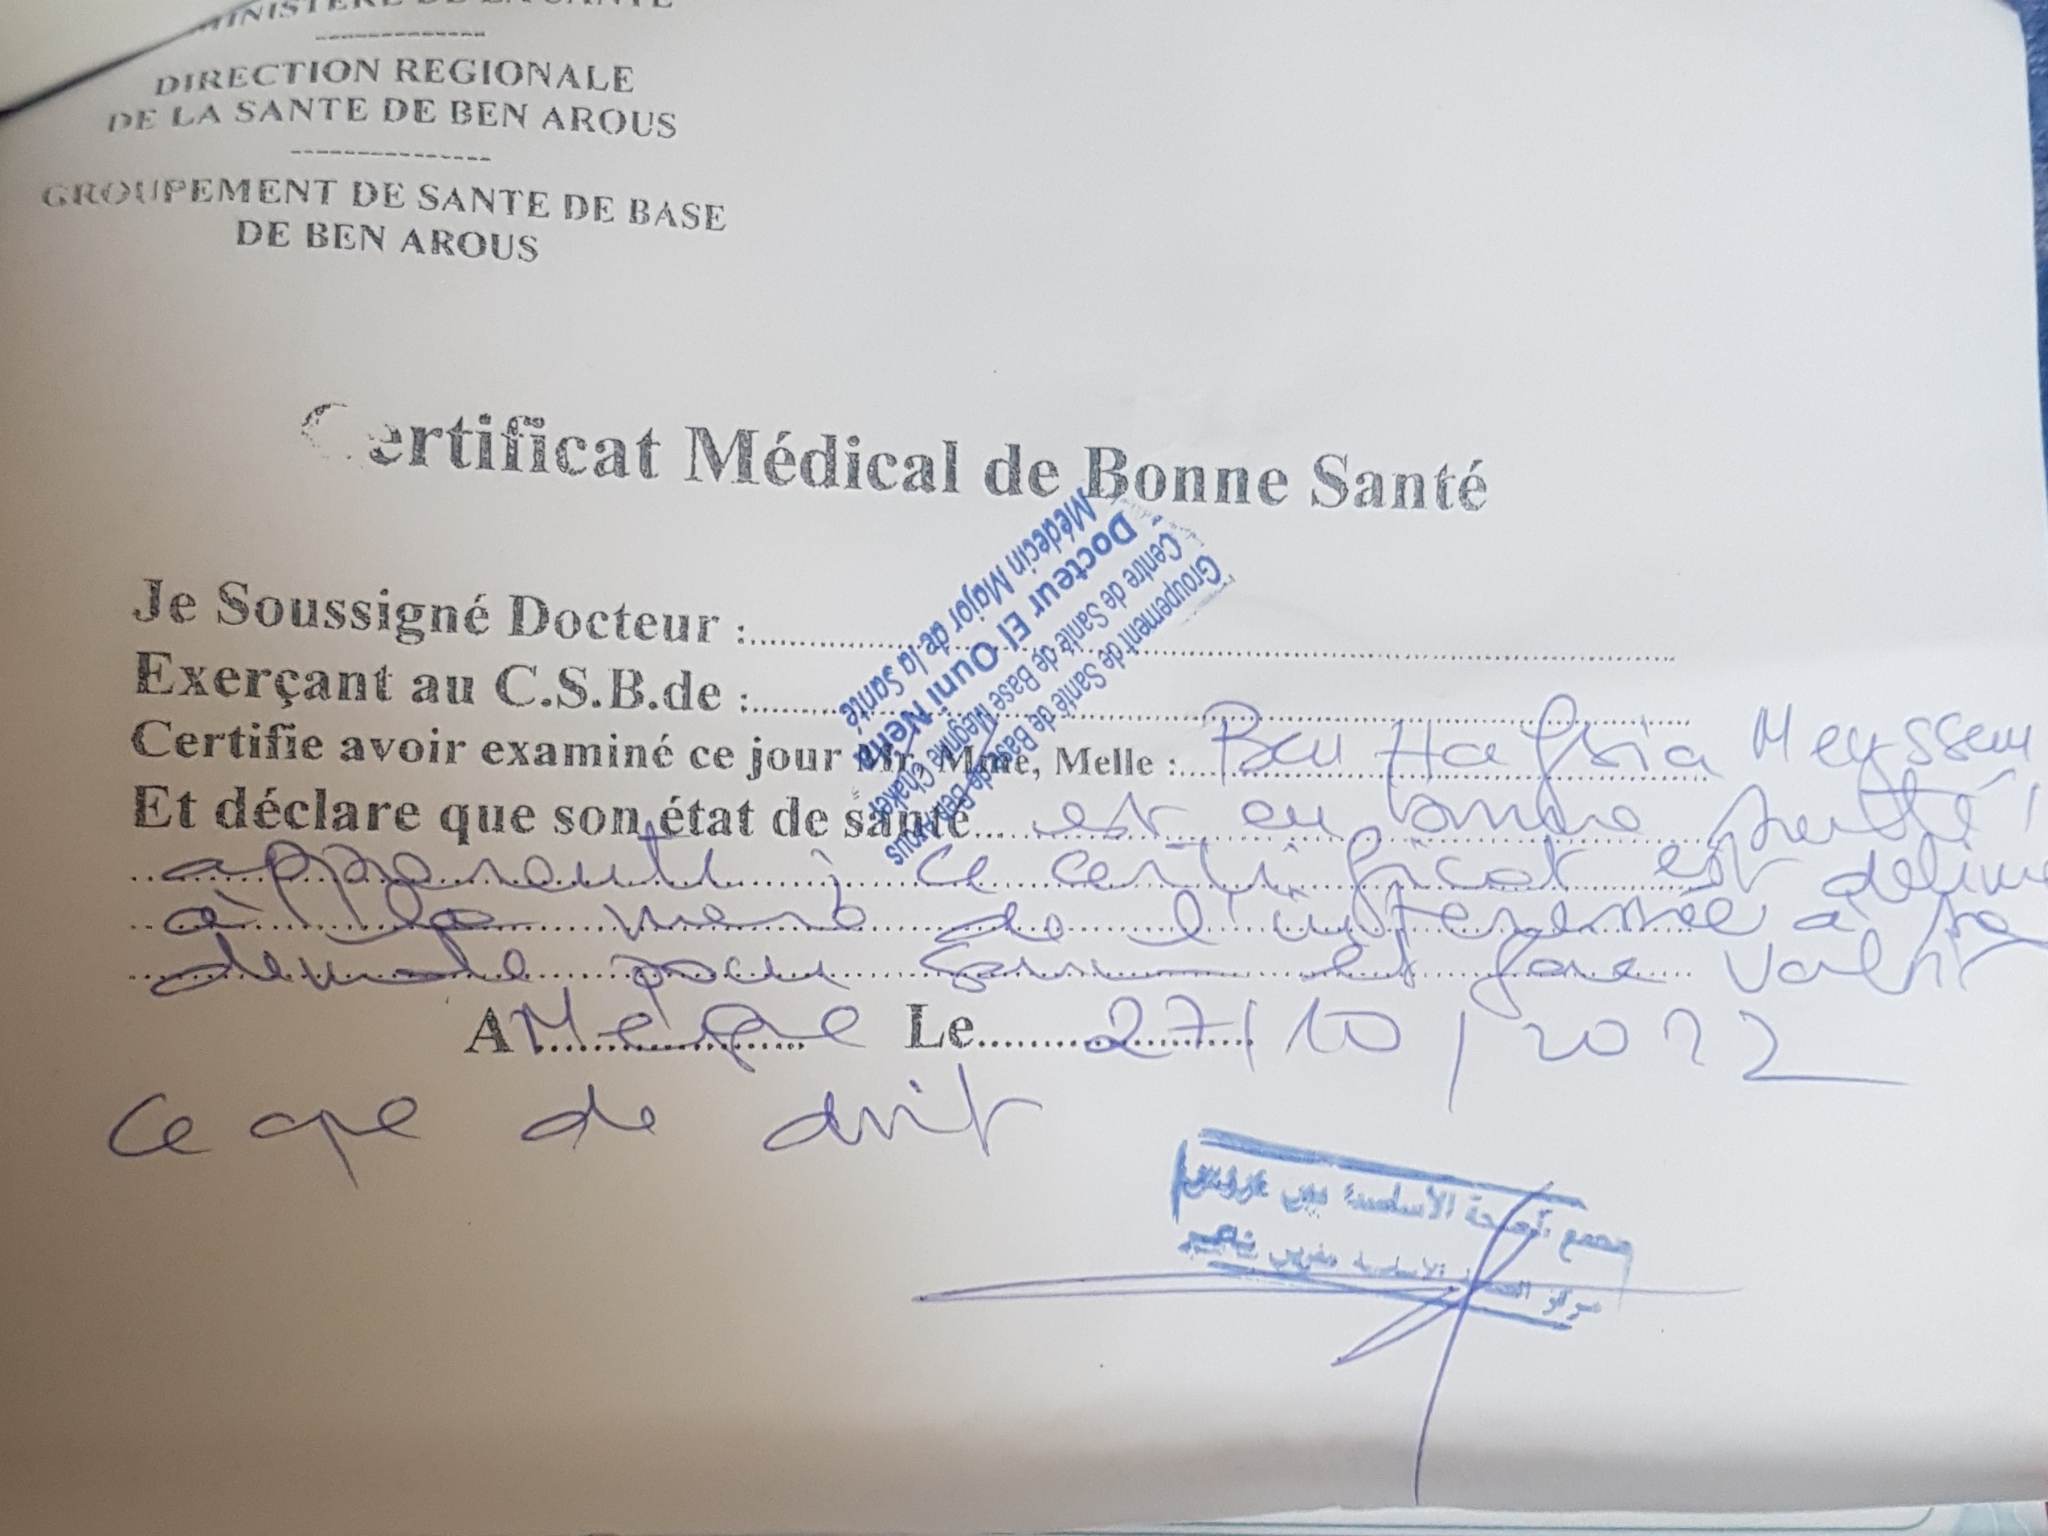 MINISTERE DE LA SANTE
DIRECTION REGIONALE
DE LA SANTE DE BEN AROUS
GROUPEMENT DE SANTE DE BASE
DE BEN AROUS
Certificat Médical de Bonne Santé
Je Soussigné Docteur :
Exerçant au C.S.B.de :
Groupement de Santé de Base de Ben Arous
Centre de Santé de Base Megrine Chaker
Docteur El Ouni Neila
Médecin Major de la Santé
Certifie avoir examiné ce jour Mr, Mme, Melle : Ben Hafsia Meyssem
Et déclare que son état de santé est en bonne santé
apparente ; ce certificat est délivré
à la mère de l'intéressée à sa
demande pour servir et faire valoir
A Megrine Le 27/10/2022
ce que de droit
مجمع الصحة الأساسية ببن عروس
مركز الصحة الأساسية بمقرين